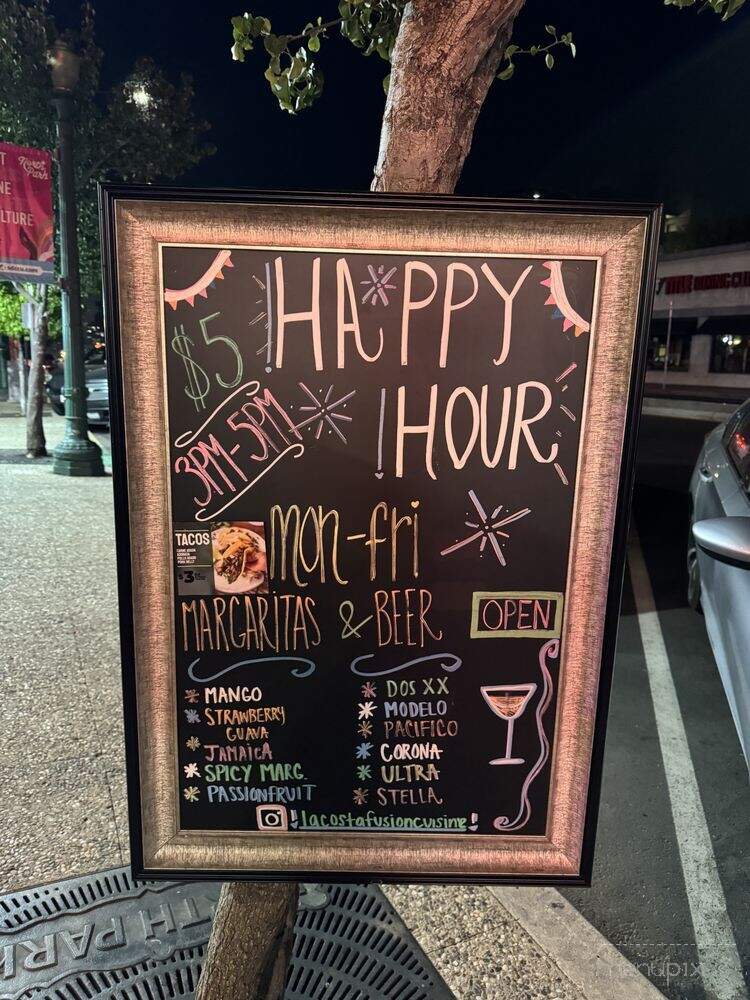 North
Park
LTURE
$5
HAPPY
HOUR
3PM-5PM
TACOS
$3
MON-fri
MARGARITAS & BEER
OPEN
MANGO
STRAWBERRY
GUAVA
JAMAICA
SPICY MARG.
PASSIONFRUIT
DOS XX
MODELO
PACIFICO
CORONA
ULTRA
STELLA
!lacostafusioncuisine!
TH PARK
menupix